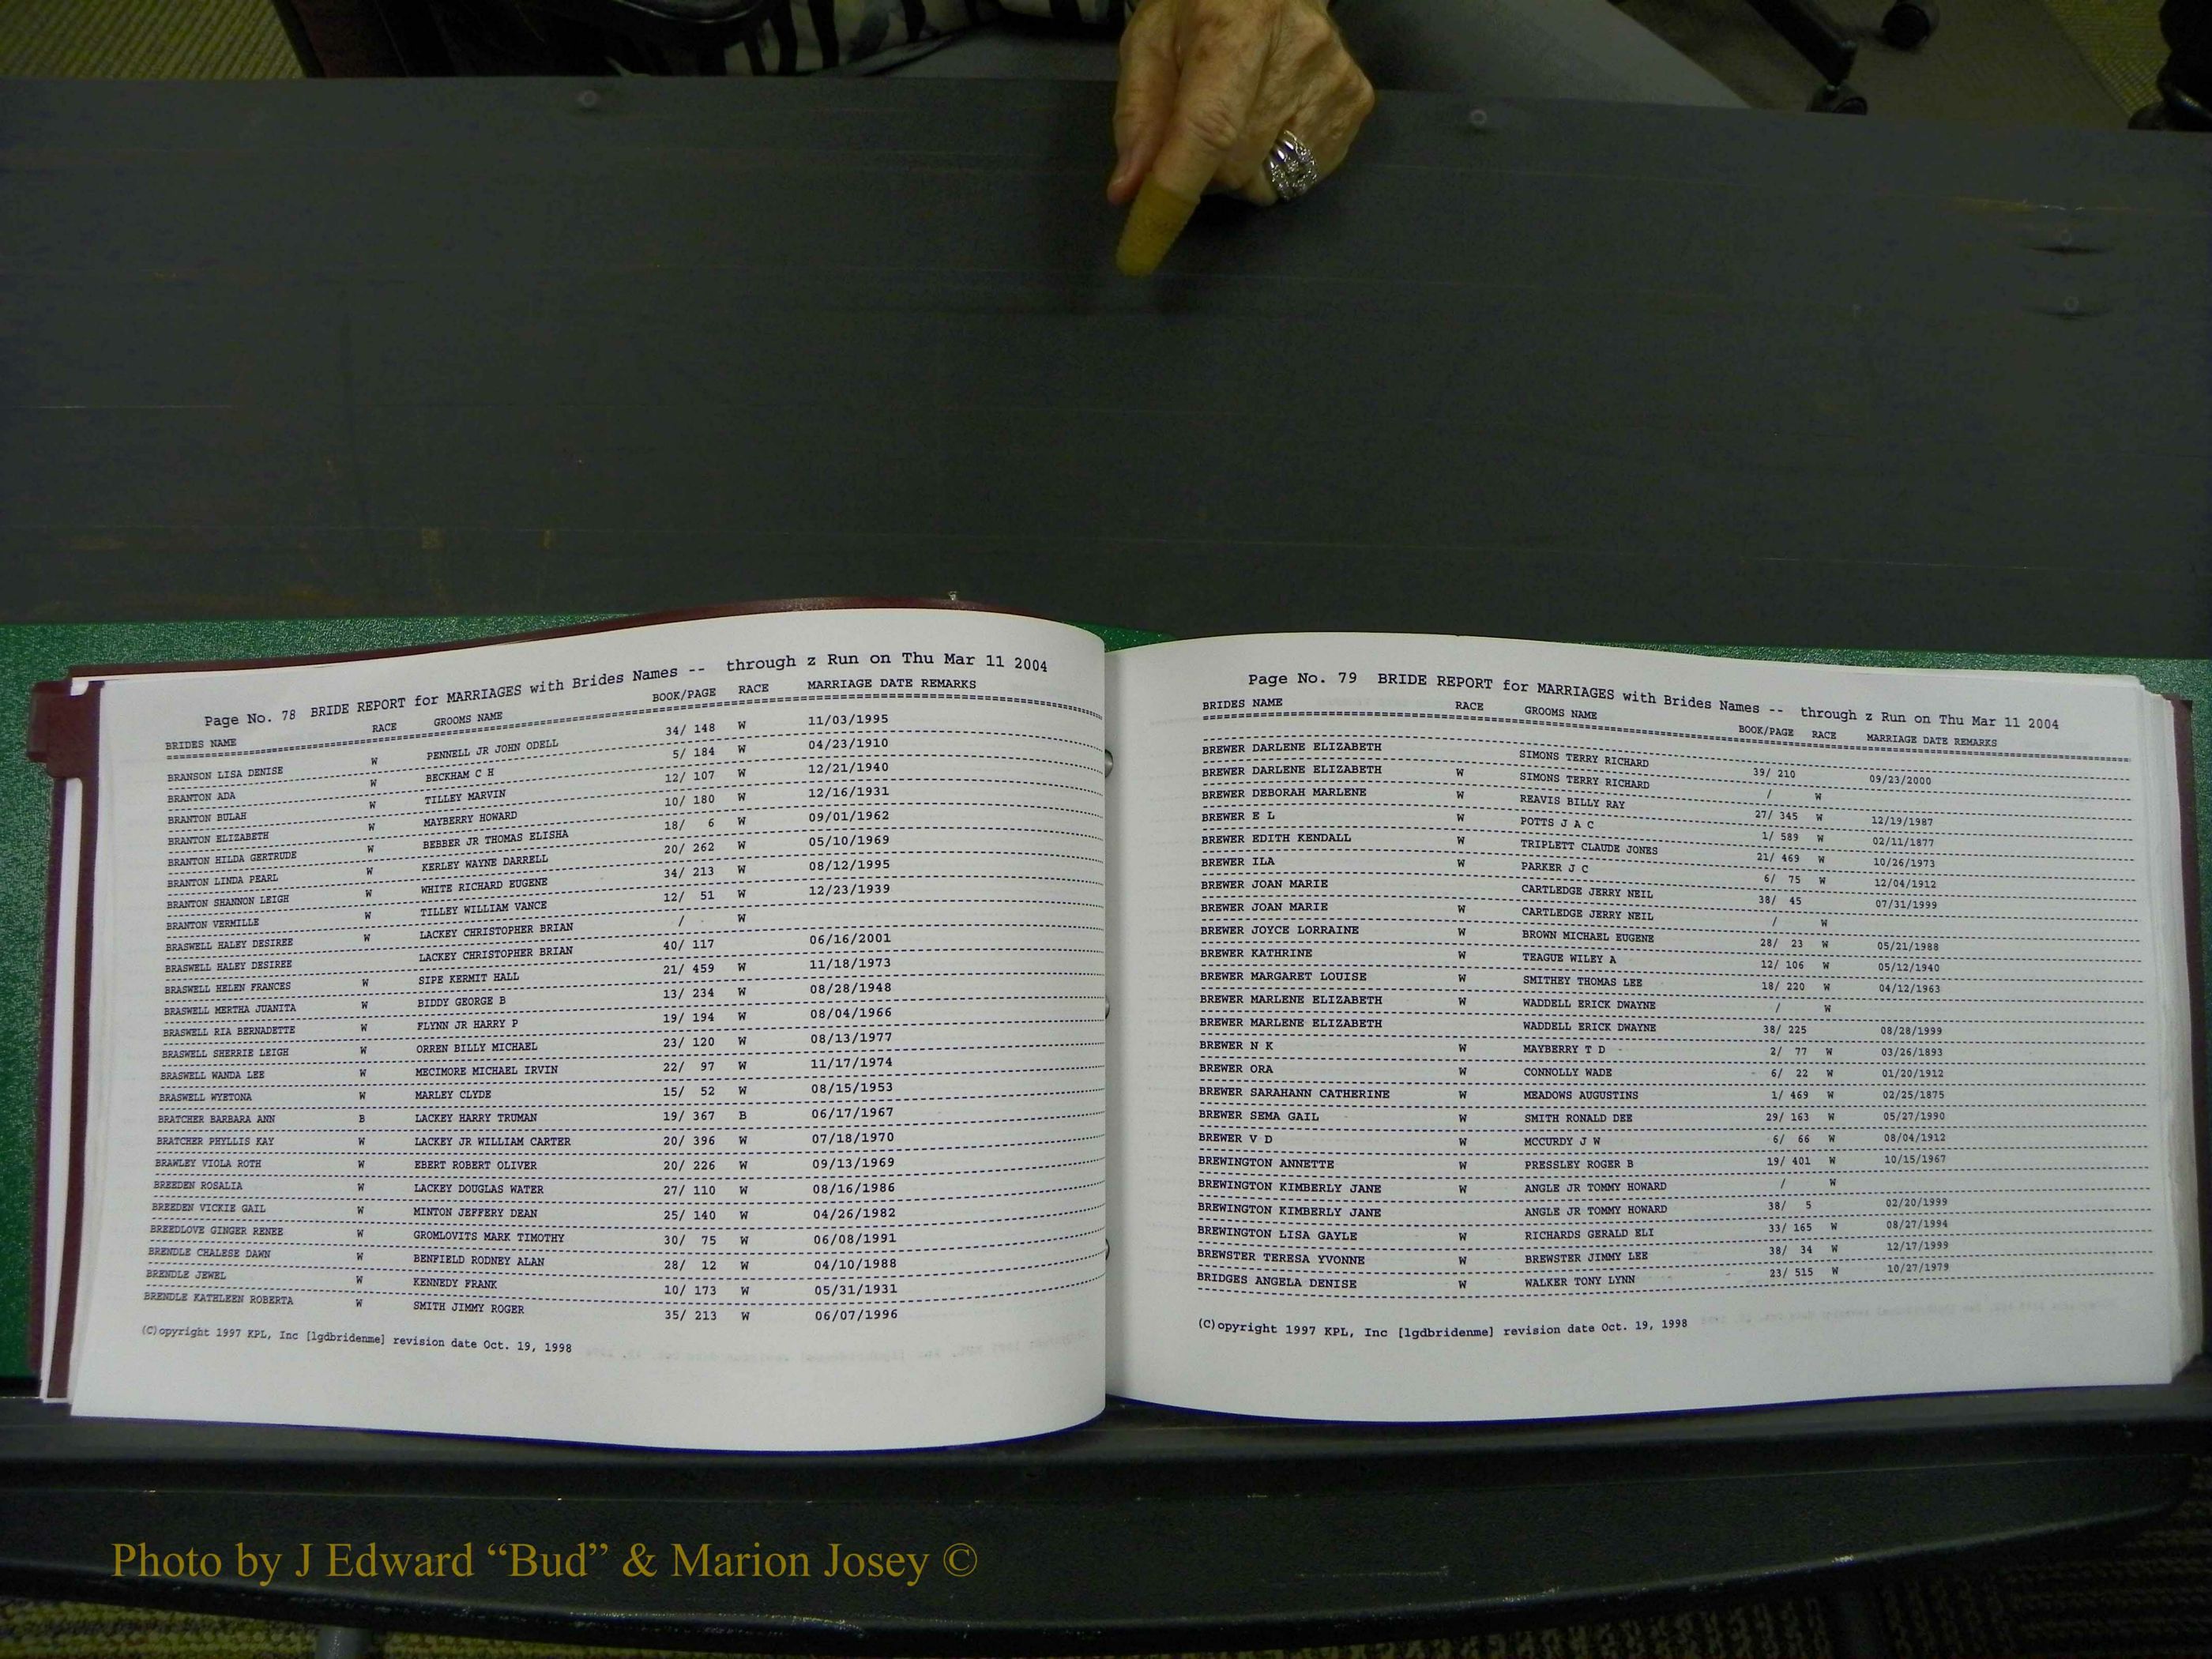 Page No. 78 BRIDE REPORT for MARRIAGES with Brides Names -- through z Run on Thu Mar 11 2004
BRIDES NAME RACE GROOMS NAME BOOK/PAGE RACE MARRIAGE DATE REMARKS
BRANSON LISA DENISE W PENNELL JR JOHN ODELL 34/ 148 W 11/03/1995
BRANTON ADA W BECKHAM C H 5/ 184 W 04/23/1910
BRANTON BULAH W TILLEY MARVIN 12/ 107 W 12/21/1940
BRANTON ELIZABETH W MAYBERRY HOWARD 10/ 180 W 12/16/1931
BRANTON HILDA GERTRUDE W BEBBER JR THOMAS ELISHA 18/ 6 W 09/01/1962
BRANTON LINDA PEARL W KERLEY WAYNE DARRELL 20/ 262 W 05/10/1969
BRANTON SHANNON LEIGH W WHITE RICHARD EUGENE 34/ 213 W 08/12/1995
BRANTON VERMILLE W TILLEY WILLIAM VANCE 12/ 51 W 12/23/1939
BRASWELL HALEY DESIREE W LACKEY CHRISTOPHER BRIAN / W
BRASWELL HALEY DESIREE LACKEY CHRISTOPHER BRIAN 40/ 117 06/16/2001
BRASWELL HELEN FRANCES W SIPE KERMIT HALL 21/ 459 W 11/18/1973
BRASWELL MERTHA JUANITA W BIDDY GEORGE B 13/ 234 W 08/28/1948
BRASWELL RIA BERNADETTE W FLYNN JR HARRY P 19/ 194 W 08/04/1966
BRASWELL SHERRIE LEIGH W ORREN BILLY MICHAEL 23/ 120 W 08/13/1977
BRASWELL WANDA LEE W MECIMORE MICHAEL IRVIN 22/ 97 W 11/17/1974
BRASWELL WYETONA W MARLEY CLYDE 15/ 52 W 08/15/1953
BRATCHER BARBARA ANN B LACKEY HARRY TRUMAN 19/ 367 B 06/17/1967
BRATCHER PHYLLIS KAY W LACKEY JR WILLIAM CARTER 20/ 396 W 07/18/1970
BRAWLEY VIOLA ROTH W EBERT ROBERT OLIVER 20/ 226 W 09/13/1969
BREEDEN ROSALIA W LACKEY DOUGLAS WATER 27/ 110 W 08/16/1986
BREEDEN VICKIE GAIL W MINTON JEFFERY DEAN 25/ 140 W 04/26/1982
BREEDLOVE GINGER RENEE W GROMLOVITS MARK TIMOTHY 30/ 75 W 06/08/1991
BRENDLE CHALESE DAWN W BENFIELD RODNEY ALAN 28/ 12 W 04/10/1988
BRENDLE JEWEL W KENNEDY FRANK 10/ 173 W 05/31/1931
BRENDLE KATHLEEN ROBERTA W SMITH JIMMY ROGER 35/ 213 W 06/07/1996
(C)opyright 1997 KPL, Inc [lgdbridenme] revision date Oct. 19, 1998
Page No. 79 BRIDE REPORT for MARRIAGES with Brides Names -- through z Run on Thu Mar 11 2004
BRIDES NAME RACE GROOMS NAME BOOK/PAGE RACE MARRIAGE DATE REMARKS
BREWER DARLENE ELIZABETH SIMONS TERRY RICHARD 39/ 210 09/23/2000
BREWER DARLENE ELIZABETH W SIMONS TERRY RICHARD / W
BREWER DEBORAH MARLENE W REAVIS BILLY RAY 27/ 345 W 12/19/1987
BREWER E L W POTTS J A C 1/ 589 W 02/11/1877
BREWER EDITH KENDALL W TRIPLETT CLAUDE JONES 21/ 469 W 10/26/1973
BREWER ILA W PARKER J C 6/ 75 W 12/04/1912
BREWER JOAN MARIE CARTLEDGE JERRY NEIL 38/ 45 07/31/1999
BREWER JOAN MARIE W CARTLEDGE JERRY NEIL / W
BREWER JOYCE LORRAINE W BROWN MICHAEL EUGENE 28/ 23 W 05/21/1988
BREWER KATHRINE W TEAGUE WILEY A 12/ 106 W 05/12/1940
BREWER MARGARET LOUISE W SMITHEY THOMAS LEE 18/ 220 W 04/12/1963
BREWER MARLENE ELIZABETH W WADDELL ERICK DWAYNE / W
BREWER MARLENE ELIZABETH WADDELL ERICK DWAYNE 38/ 225 08/28/1999
BREWER N K W MAYBERRY T D 2/ 77 W 03/26/1893
BREWER ORA W CONNOLLY WADE 6/ 22 W 01/20/1912
BREWER SARAHANN CATHERINE W MEADOWS AUGUSTINS 1/ 469 W 02/25/1875
BREWER SEMA GAIL W SMITH RONALD DEE 29/ 163 W 05/27/1990
BREWER V D W MCCURDY J W 6/ 66 W 08/04/1912
BREWINGTON ANNETTE W PRESSLEY ROGER B 19/ 401 W 10/15/1967
BREWINGTON KIMBERLY JANE W ANGLE JR TOMMY HOWARD / W
BREWINGTON KIMBERLY JANE ANGLE JR TOMMY HOWARD 38/ 5 02/20/1999
BREWINGTON LISA GAYLE W RICHARDS GERALD ELI 33/ 165 W 08/27/1994
BREWSTER TERESA YVONNE W BREWSTER JIMMY LEE 38/ 34 W 12/17/1999
BRIDGES ANGELA DENISE W WALKER TONY LYNN 23/ 515 W 10/27/1979
(C)opyright 1997 KPL, Inc [lgdbridenme] revision date Oct. 19, 1998
Photo by J Edward “Bud” & Marion Josey ©